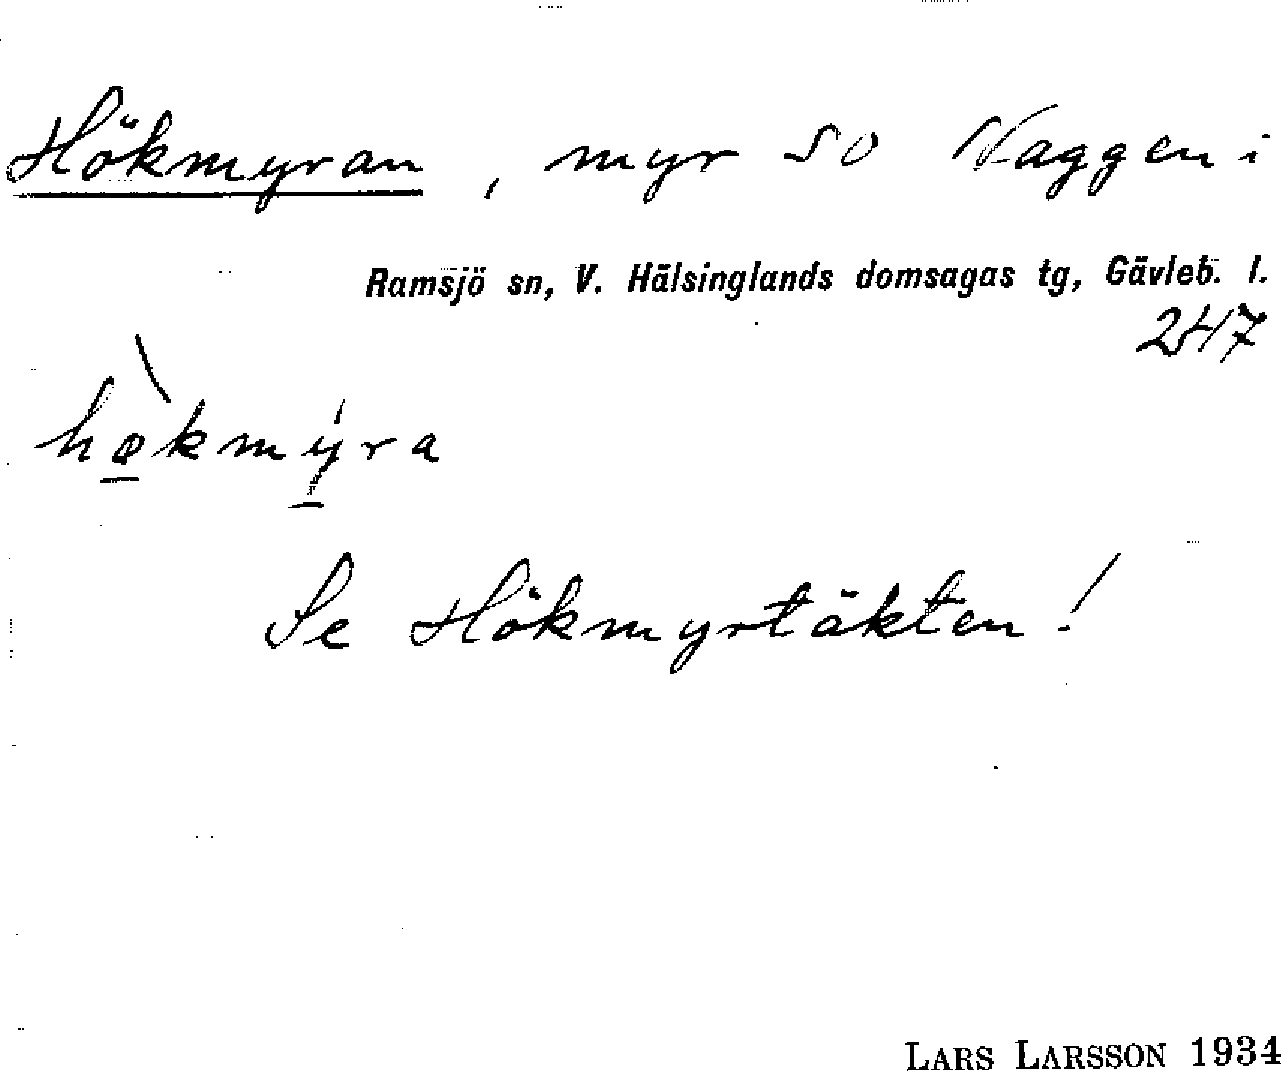 Hökmyran, myr SO Naggen i
Ramsjö sn, V. Hälsinglands domsagas tg, Gävleb. l.
247
hø̱̀kmý̱ra
Se Hökmyrtäkten!
LARS LARSSON 1934